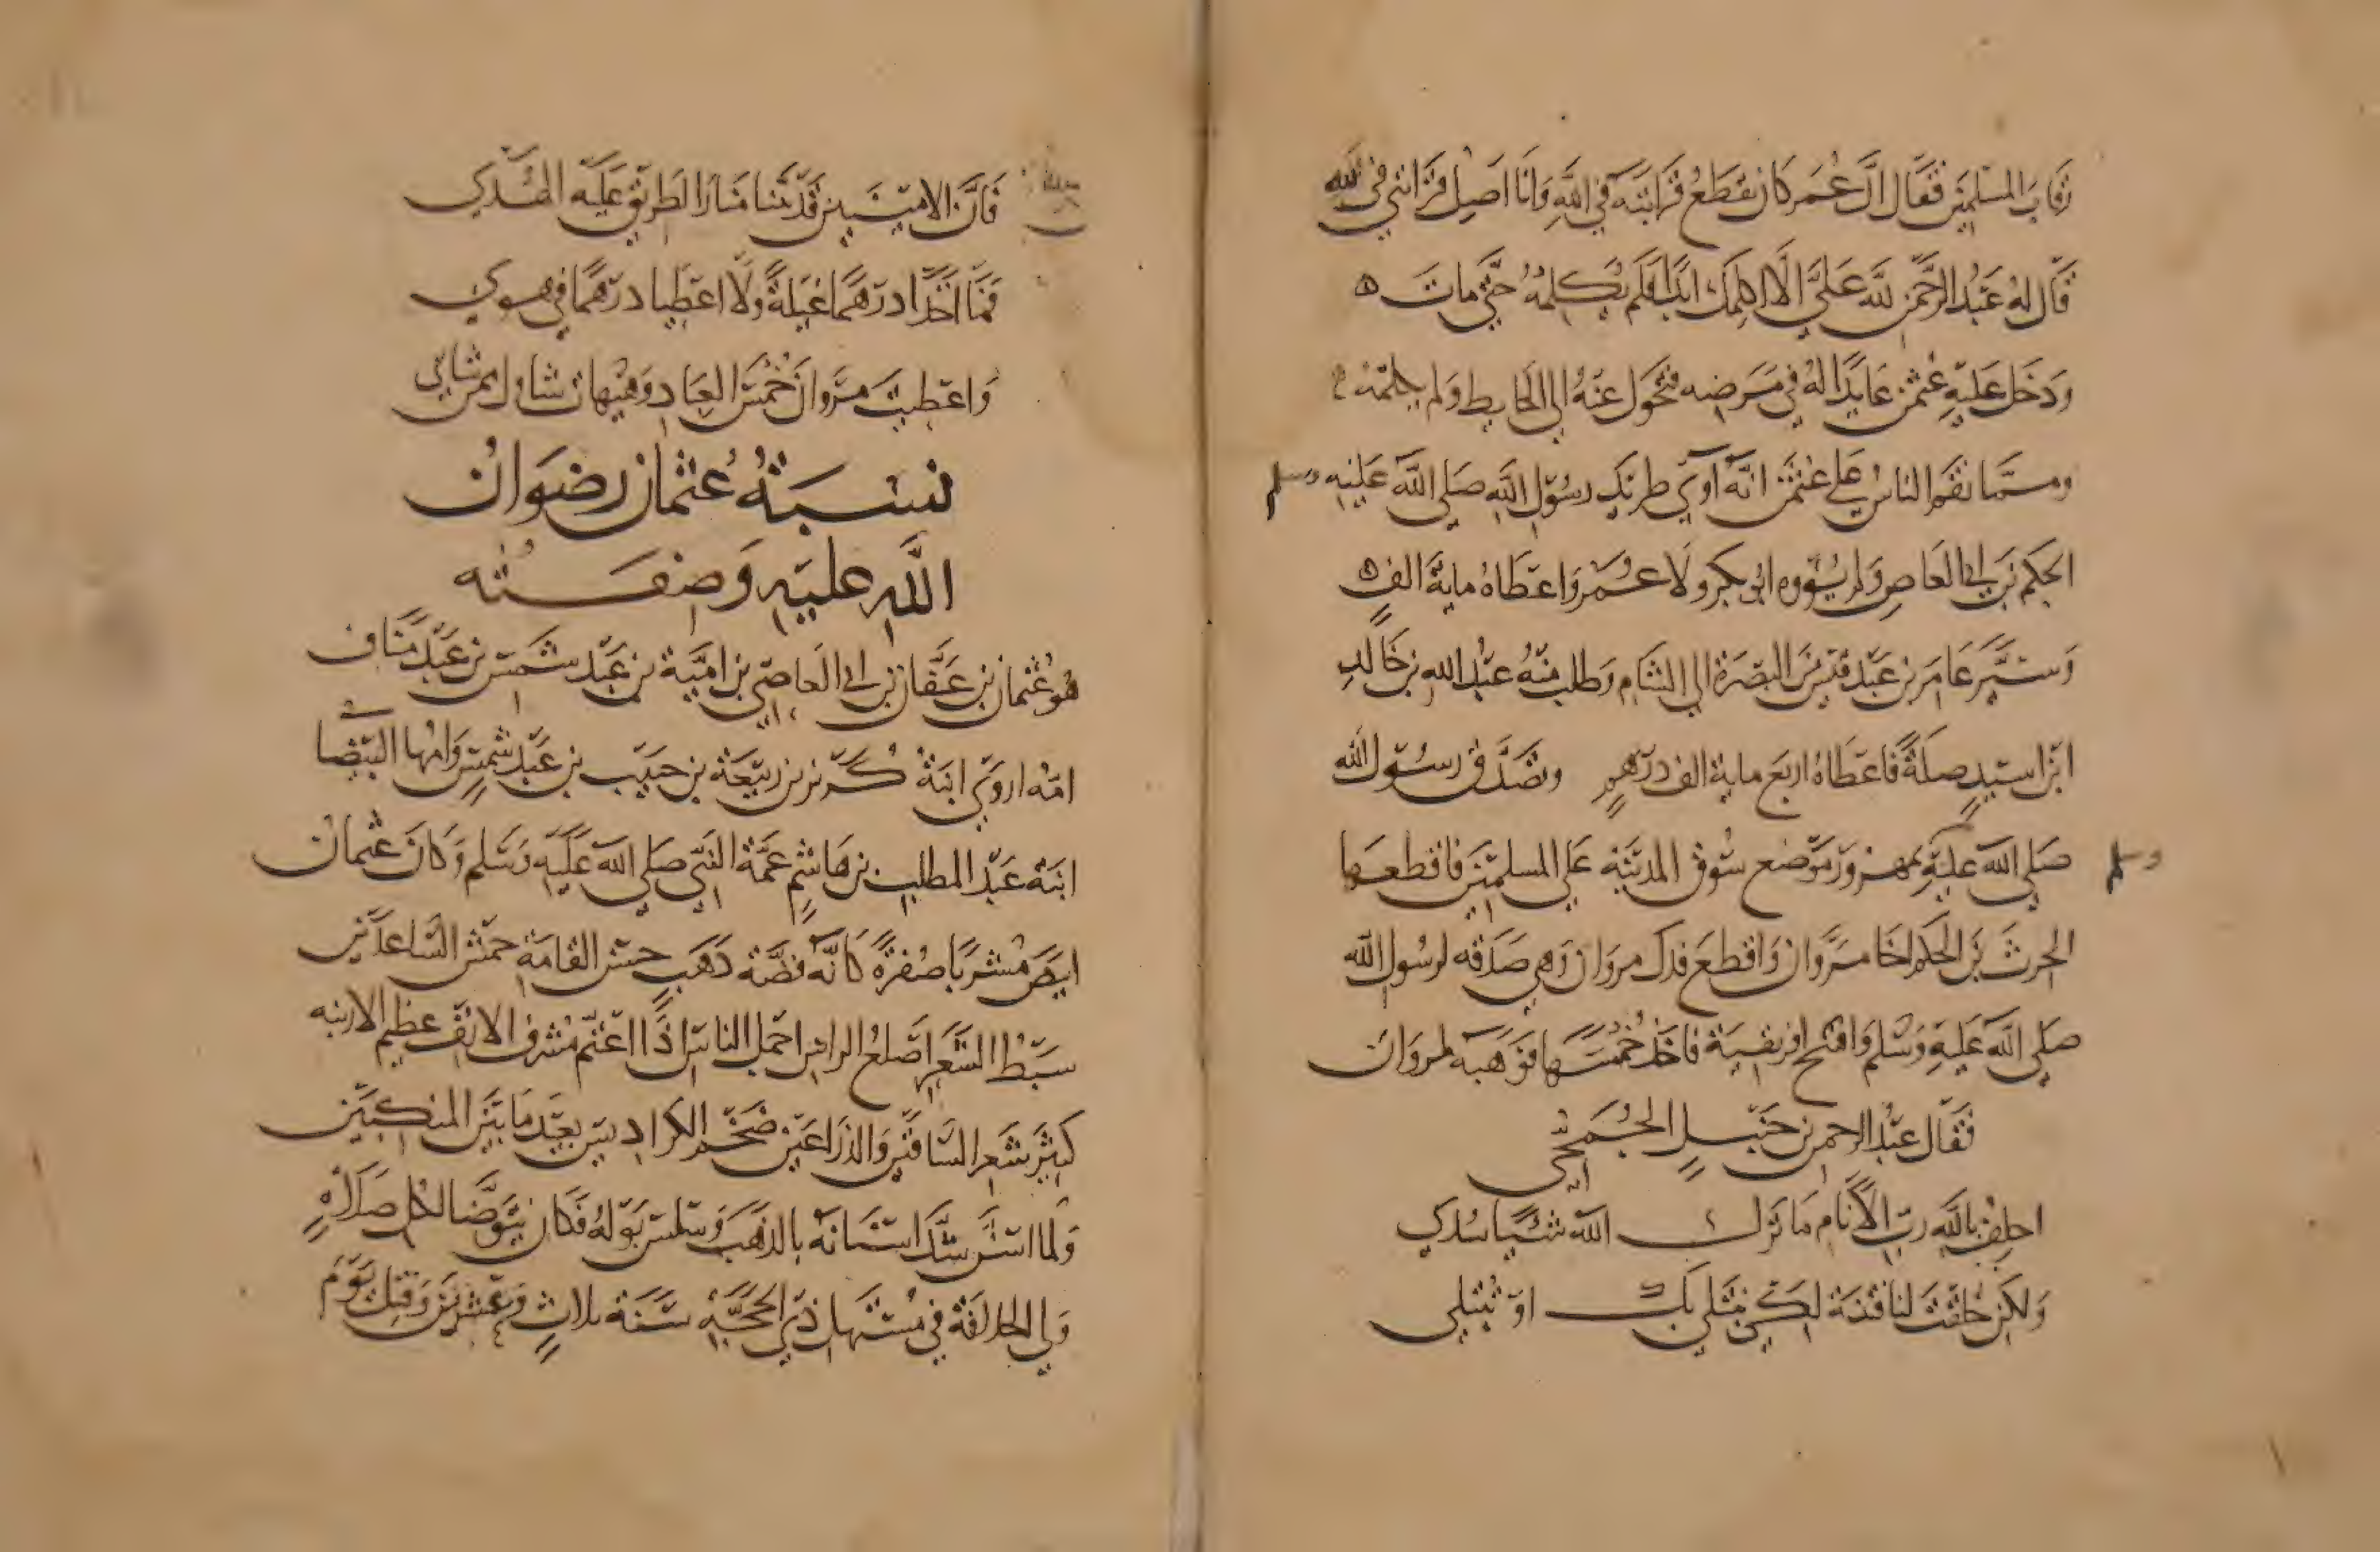 رقاب المسلمين فقال ان عمر كان يقطع قرابته في الله وانا اصل قرابتي في الله
قال له عبد الرحمن لله علي الا اكلمك ابدا فلم يكلمه حتى مات ه
ودخل عليه عثمن عايدا له في مرضه فتحول عنه الي الحايط ولم يكلمه
ومما نقم الناس علي عثمن انه آوي طريد رسول الله صلي الله عليه وسلم
الحكم بن ابي العاص ولم يؤوه ابو بكر ولا عمر واعطاه ماية الف ه
وسير عامر بن عبد قيس من البصرة الي الشام وطلب منه عبد الله بن خالد
ابن اسيد صلة فاعطاه اربع ماية الف درهم وتصدق رسول الله
صلي الله عليه وسلم بمهزور موضع سوق المدينة علي المسلمين فاقطعها
الحرث بن الحكم اخا مروان واقطع فدك مروان وهي صدقه لرسول الله
صلي الله عليه وسلم وافتتح افريقية فاخذ خمسها فوهبه لمروان
فقال عبد الرحمن بن حنبل الجمحي
احلف بالله رب الانام ما ترك الله شيا سدي
ولكن خلقت لنا فتنة لكي نبتلي بك او تبتلي
فان الامينين قد بينا منار الطريق عليه الهدي
فما اخذا درهما غيلة ولا اعطيا درهما في هوي
واعطيت مروان خمس العباد وهيهات شاوك ممن شاي
نسبة عثمان رضوان
الله عليه وصفته
هو عثمان بن عفان بن ابي العاصي بن امية بن عبد شمس بن عبد مناف
امه اروي ابنة كريز بن ربيعة بن حبيب بن عبد شمس وامها البيضا
ابنة عبد المطلب بن هاشم عمة النبي صلي الله عليه وسلم وكان عثمان
ابيض مشربا صفرة كانه فضة وذهب حسن القامة حمش الساعدين
سبط الشعر اصلع الراس اجمل الناس اذا اعتم مشرف الانف عظيم الارنبه
كثير شعر الساقين والذراعين ضخم الكراديس بعيد ما بين المنكبين
ولما اسن شد اسنانه بالذهب وسلس بوله فكان يتوضا لكل صلاة
ولي الخلافة في مستهل ذي الحجة سنة ثلاث وعشرين وقتل يوم